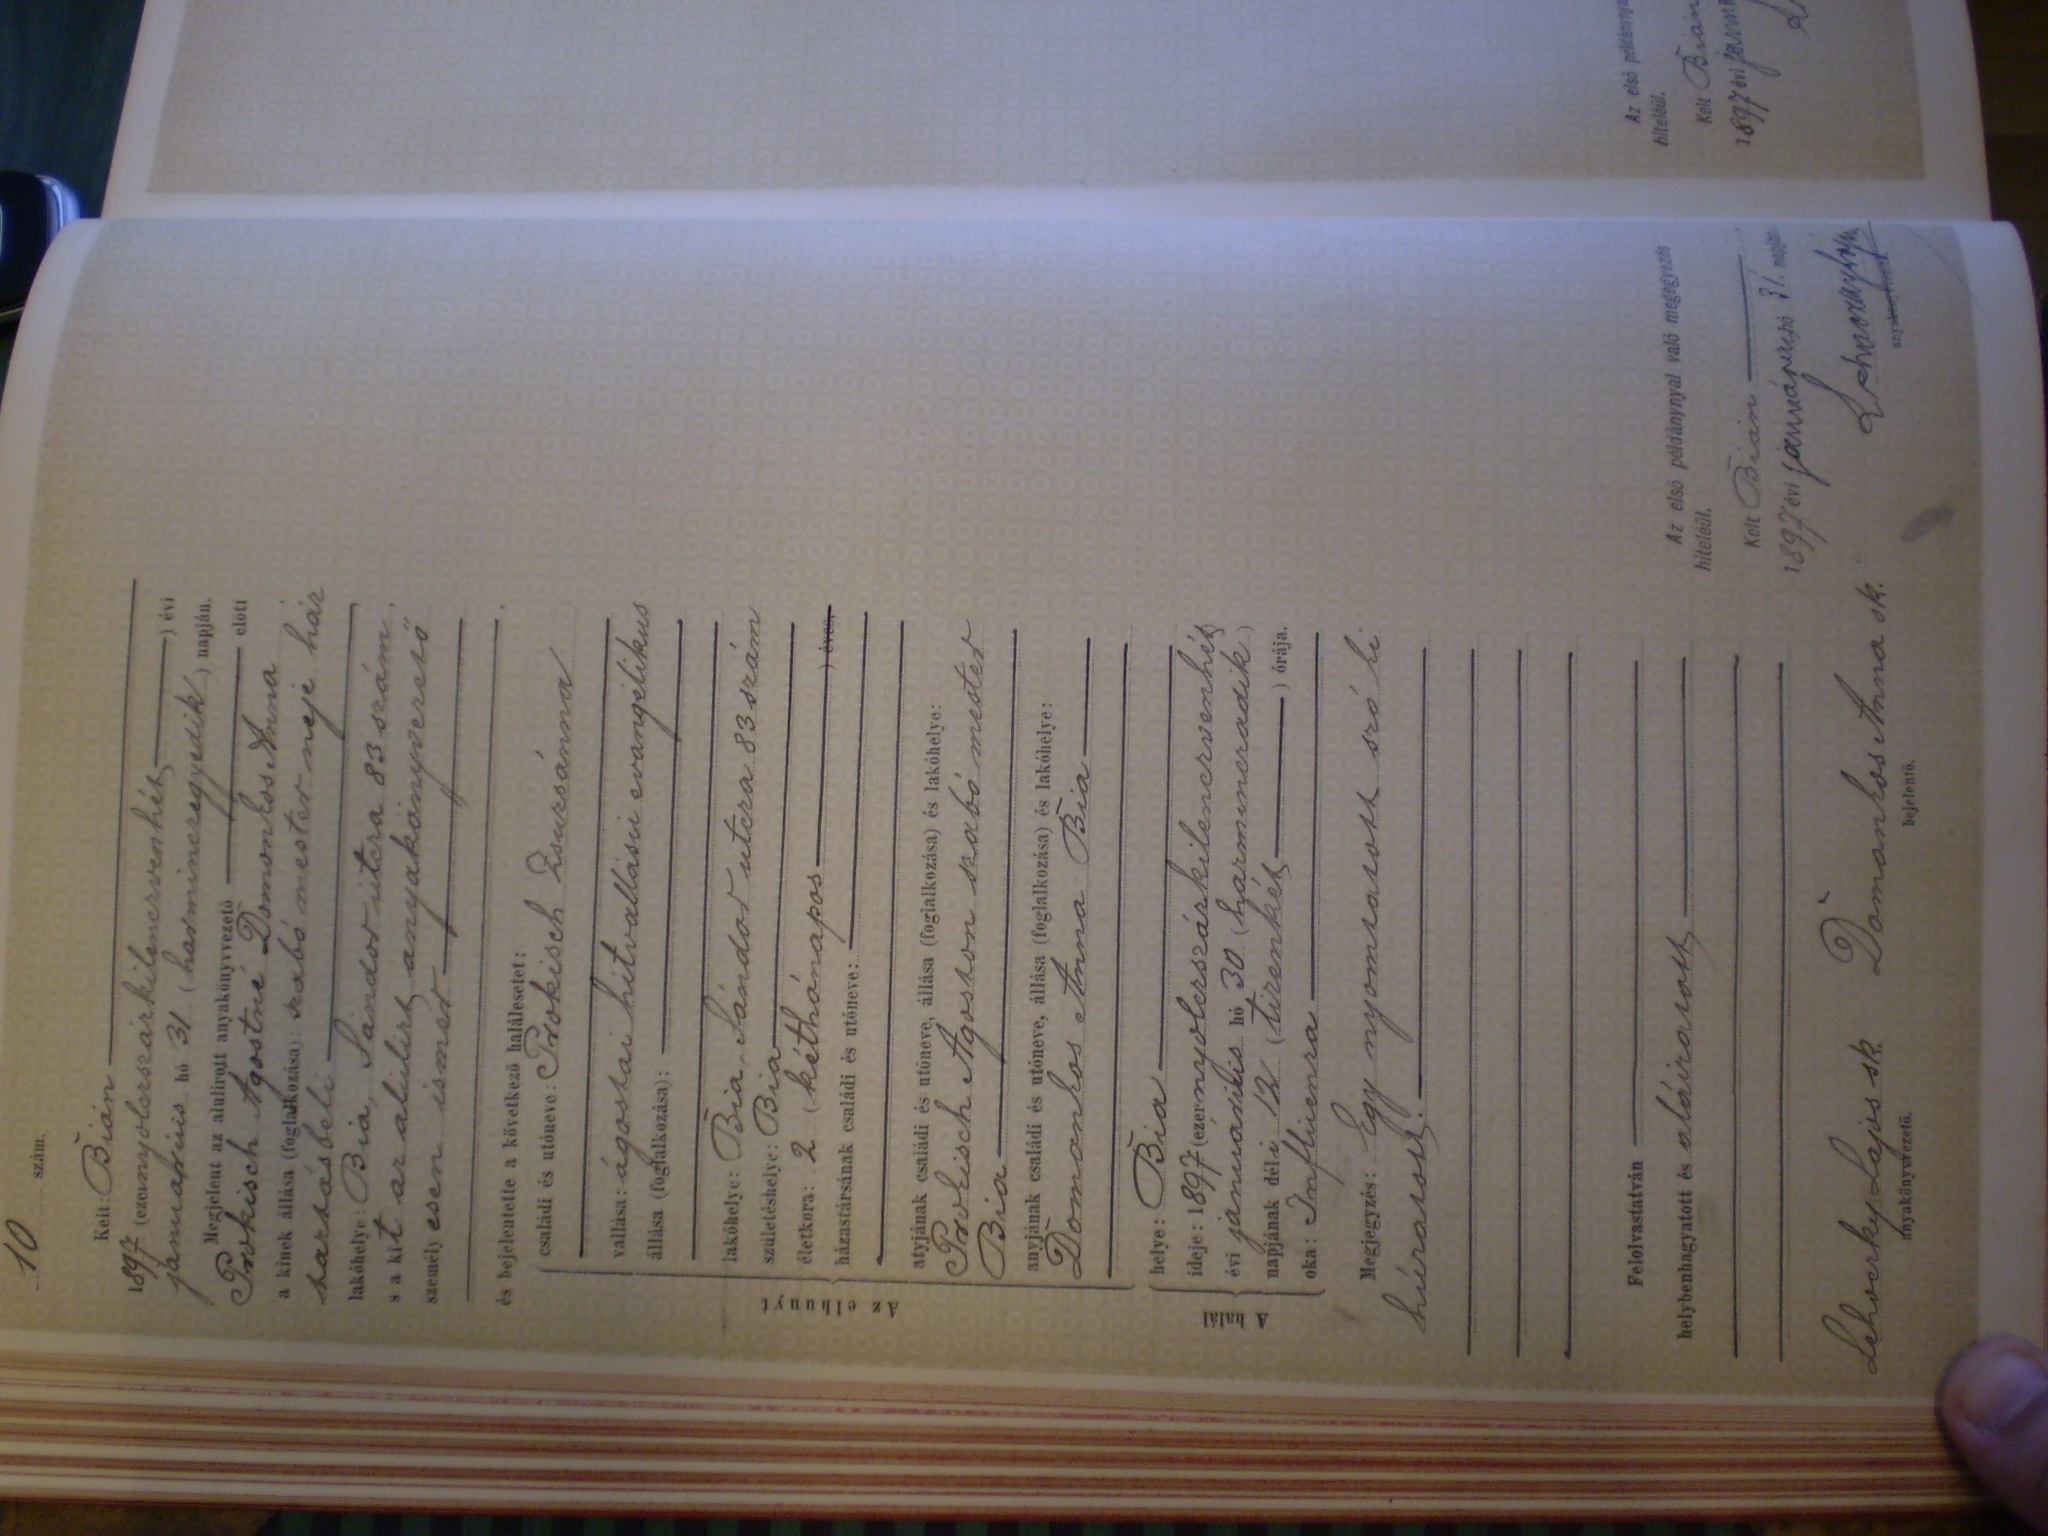 10 szám.
Kelt: Bián
1897 (ezernyolczszázkilenczvenhét) évi
januárius hó 31 (harminczegyedik) napján.
Megjelent az alulirott anyakönyvvezető előtt
Prokisch Ágostné Domonkos Anna
a kinek állása (foglalkozása): szabó mester neje ház
tartásbeli
lakóhelye: Bia, Sándor utcza 83 szám.
s a kit az alulirt anyakönyvvezető
személyesen ismer
és bejelentette a következő halálesetet:
Az elhunyt
családi és utóneve: Prokisch Zsuzsánna
vallása: ágostai hitvallásu evangelikus
állása (foglalkozása):
lakóhelye: Bia, Sándor utcza 83 szám
születéshelye: Bia
életkora: 2 (kéthónapos) éves,
házastársának családi és utóneve:
atyjának családi és utóneve, állása (foglalkozása) és lakóhelye:
Prokisch Ágoston szabó mester
Bia
anyjának családi és utóneve, állása (foglalkozása) és lakóhelye:
Domonkos Anna Bia
A halál
helye: Bia
ideje: 1897 (ezernyolczszázkilenczvenhét)
évi januárius hó 30 (harminczadik)
napjának déli 12 (tizenkét) órája.
oka: Influenza
Megjegyzés: Egy nyomtatott szó ki
húzatott.
Felolvastatván
helybenhagyatott és aláiratott
Lehoczky Lajos sk. Domonkos Anna sk.
anyakönyvvezető. bejelentő.
Az első példánynyal való megegyezés
hiteléül.
Kelt Bián
1897 évi januárius hó 31. napján
anyakönyvvezető
Az első példánynyal
hiteléül.
Kelt Bián
1897 évi